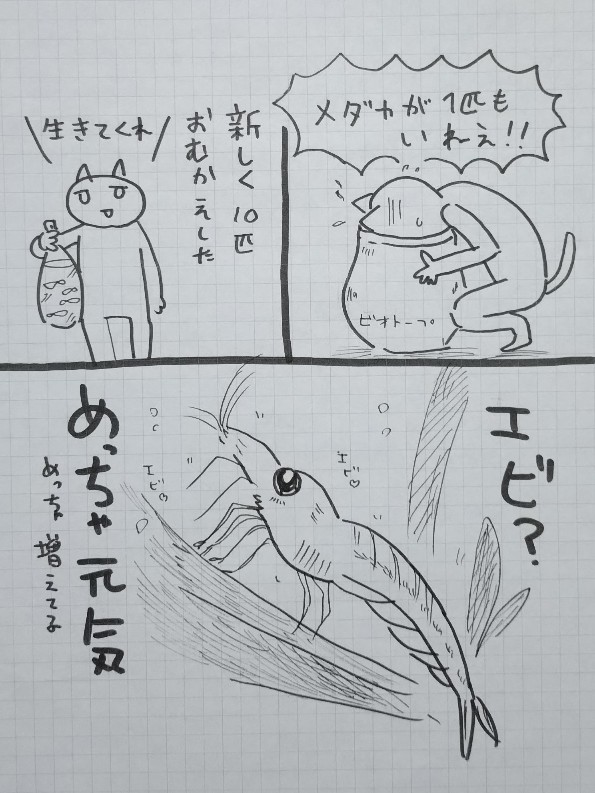 メダカが1匹も
いねぇ!!
ビオトープ
新しく10匹
おむかえした
生きてくれ
エビ?
エビ♡
エビ♡
めっちゃ元気
めっちゃ増えてる